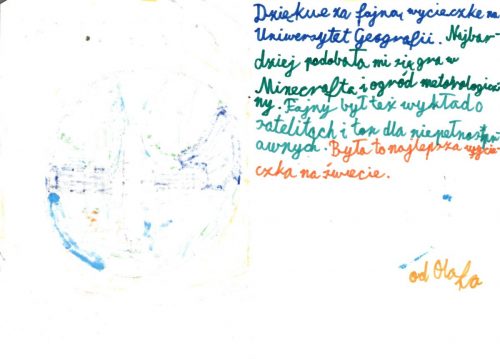 Dziękuę za fajną wycieczkę na
Uniwersytet Geografii. Najbar-
dziej podobała mi się gra w
Minecrafta i ogród metorologicz-
ny. Fajny był też wykład o
satelitach i tor dla niepełnospr-
awnych. Była to najlepsza wycie-
czka na świecie.
od Olafa